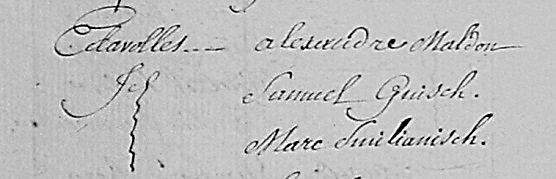 Etavolles -- alexendre Maldon
Jd Samuel Guisch.
Marc Smilianisch.